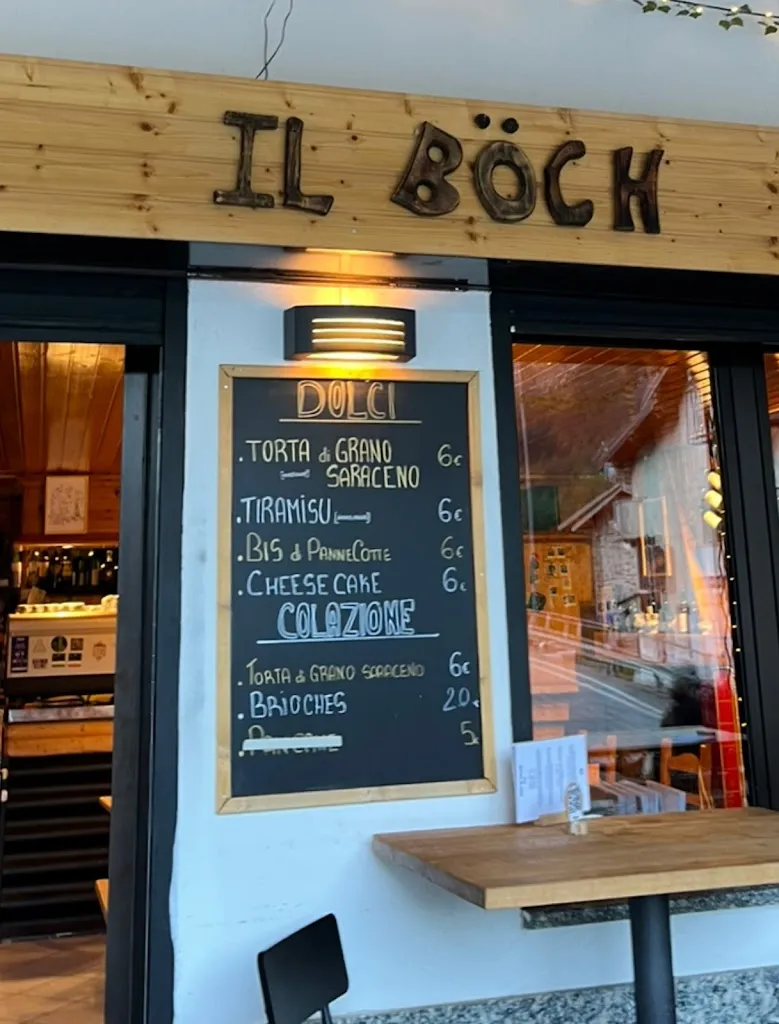 IL BÖCH
DOLCI
. TORTA di GRANO SARACENO 6€
. TIRAMISU 6€
. BIS di PANNECOTTE 6€
. CHEESE CAKE 6€
COLAZIONE
. TORTA di GRANO SARACENO 6€
. BRIOCHES 2.0€
. 5€